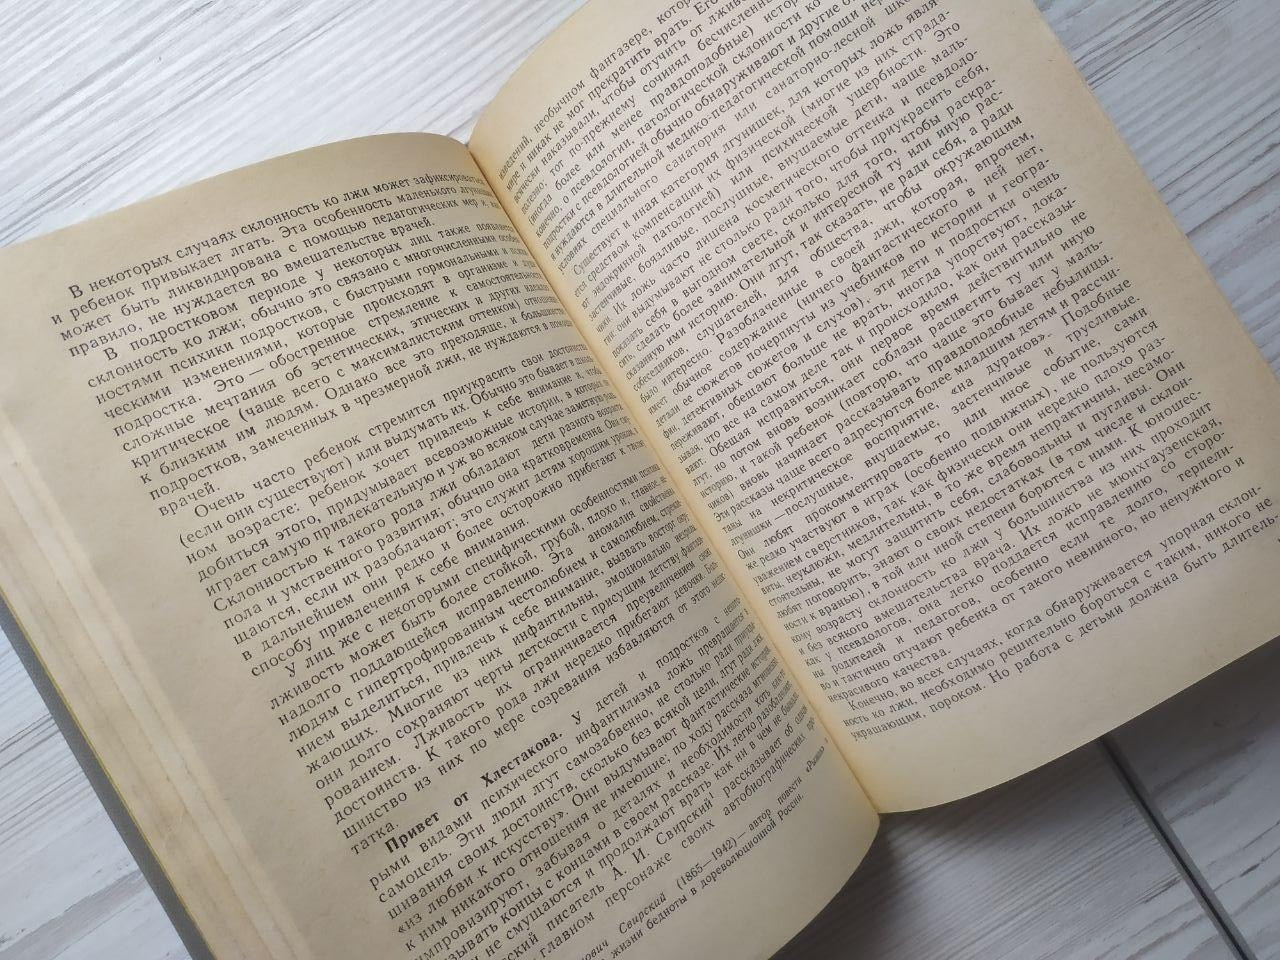 В некоторых случаях склонность ко лжи может зафиксироваться
и ребенок привыкает лгать. Эта особенность маленького лгунишки
может быть ликвидирована с помощью педагогических мер и, как
правило, не нуждается во вмешательстве врачей.
В подростковом периоде у некоторых лиц также появляется
склонность ко лжи; обычно это связано с многочисленными особен-
ностями психики подростков, с быстрыми гормональными и
ческими изменениями, которые происходят в организме и
подростка. Это — обостренное стремление к самостоятельности,
сложные мечтания об эстетических, этических и других идеалах,
критическое (чаще всего с максималистским оттенком) отношение
к близким им людям. Однако все это преходяще, и большинство
подростков, замеченных в чрезмерной лжи, не нуждаются в помощи
врачей.
Очень часто ребенок стремится приукрасить свои достоинства
(если они существуют) или выдумать их. Обычно это бывает в школь-
ном возрасте: ребенок хочет привлечь к себе внимание и, чтобы
добиться этого, придумывает всевозможные истории, в которых он
играет самую привлекательную и уж во всяком случае заметную роль.
Склонностью к такого рода лжи обладают дети разного возраста,
пола и умственного развития; обычно она кратковременна. Они сму-
щаются, если их разоблачают; это служит детям хорошим уроком, и
в дальнейшем они редко и более осторожно прибегают к такому
способу привлечения к себе внимания.
У лиц же с некоторыми специфическими особенностями психики
лживость может быть более стойкой, грубой, плохо и, главное,
надолго поддающейся исправлению. Эта аномалия свойственна
людям с гипертрофированным честолюбием и самолюбием,
нием выделиться, привлечь к себе внимание, вызвать восторг
жающих. Многие из них инфантильны, эмоционально
они долго сохраняют черты детскости с присущим детству
рованием. Лживость их ограничивается преувеличением своих
достоинств. К такого рода лжи нередко прибегают девочки.
шинство из них по мере созревания избавляются от этого недос-
татка.
Привет от Хлестакова. У детей и подростков с
рыми видами психического инфантилизма ложь превращается в
самоцель. Эти люди лгут самозабвенно, не столько ради
шивания своих достоинств, сколько без всякой цели, лгут ради лжи,
«из любви к искусству». Они выдумывают фантастические истории,
к ним никакого отношения не имеющие; по ходу рассказа многое
импровизируют, забывая о деталях и необходимости хоть как-то
связывать концы с концами в своем рассказе. Их легко разоблачить,
они не смущаются и продолжают врать как ни в чем не бывало.
писатель А. И. Свирский¹ рассказывает об одном
главном персонаже своих автобиографических
ович Свирский (1865—1942) — автор повести «Рыжик»
жизни бедноты в дореволюционной России.
необычном фантазере,
мире и никак не мог прекратить врать. Его
наказывали, чтобы отучить от
тот по-прежнему сочинял бесчисленные
более или менее правдоподобные)
о псевдологии, патологической склонности ко
с псевдологией обычно обнаруживают и другие
нуждаются в длительной медико-педагогической помощи
условиях специального санатория или санаторно-лесной
Существует и иная категория лгунишек, для которых ложь явля-
ется средством компенсации их физической (многие из них страда-
ют эндокринной патологией) или психической ущербности. Это
боязливые, послушные, внушаемые дети, чаще маль-
чики. Их ложь часто лишена косметического оттенка и псевдоло-
гии, они выдумывают не столько ради того, чтобы приукрасить себя,
показать себя в выгодном свете, сколько для того, чтобы раскра-
сить, сделать более занимательной и интересной ту или иную рас-
сказанную ими историю. Они лгут, так сказать, не ради себя, а ради
собеседников, слушателей, для общества, чтобы окружающим
было интересно. Разоблаченные в своей лжи, которая, впрочем,
имеет обычное содержание (ничего фантастического в ней нет,
детали ее сюжетов почерпнуты из учебников по истории и геогра-
фии, детективных сюжетов и слухов), эти дети и подростки очень
переживают, обещают больше не врать, иногда упорствуют, дока-
зывая, что все на самом деле так и происходило, как они рассказы-
вают. Обещая исправиться, они первое время действительно не
лгут, но потом вновь возникает соблазн расцветить ту или иную
историю, и такой ребенок (повторю, что чаще это бывает у маль-
чиков) вновь начинает рассказывать правдоподобные небылицы.
Эти рассказы чаще всего адресуются более младшим детям и рассчи-
таны на некритическое восприятие, «на дураков». Подобные
лгунишки — послушные, внушаемые, застенчивые и трусливые.
Они любят прокомментировать то или иное событие, сами
же редко участвуют в играх (особенно подвижных), не пользуются
уважением сверстников, так как физически они нередко плохо раз-
виты, неуклюжи, медлительны, в то же время непрактичны, несамо-
стоятельны, не могут защитить себя, слабовольны и пугливы. Они
любят поговорить, знают о своих недостатках (в том числе и склон-
ности к вранью), в той или иной степени борются с ними. К юношес-
кому возрасту склонность ко лжи у большинства из них проходит
и без всякого вмешательства врача. Их ложь не мюнхгаузенская,
как у псевдологов, она легко поддается исправлению со сторо-
ны родителей и педагогов, особенно если те долго, терпели-
во и тактично отучают ребенка от такого невинного, но ненужного и
некрасивого качества.
Конечно, во всех случаях, когда обнаруживается упорная склон-
ность ко лжи, необходимо решительно бороться с таким, никого не
украшающим, пороком. Но работа с детьми должна быть длитель-